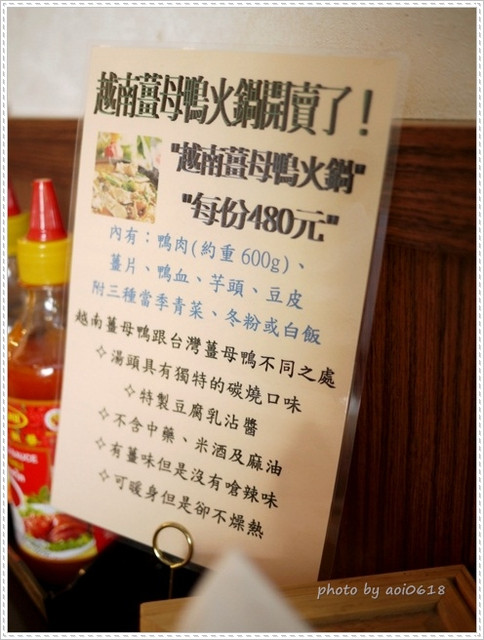 越南薑母鴨火鍋開賣了！
"越南薑母鴨火鍋"
"每份480元"
內有：鴨肉(約重600g)、
薑片、鴨血、芋頭、豆皮
附三種當季青菜、冬粉或白飯
越南薑母鴨跟台灣薑母鴨不同之處
✧湯頭具有獨特的碳燒口味
✧特製豆腐乳沾醬
✧不含中藥、米酒及麻油
✧有薑味但是沒有嗆辣味
✧可暖身但是卻不燥熱
photo by aoi0618